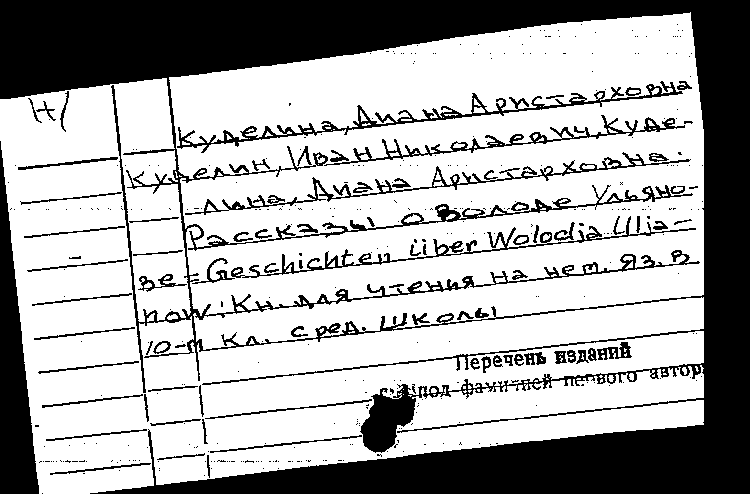 Н/
Куделина, Диана Аристарховна
Куделин, Иван Николаевич, Куде-
лина, Диана Аристарховна.
Рассказы о Володе Ульяно-
ве = Geschichten über Wolodja Ulja-
now: Кн. для чтения на нем. яз. в
10-м кл. сред. школы
Перечень изданий
под фамилией первого автора